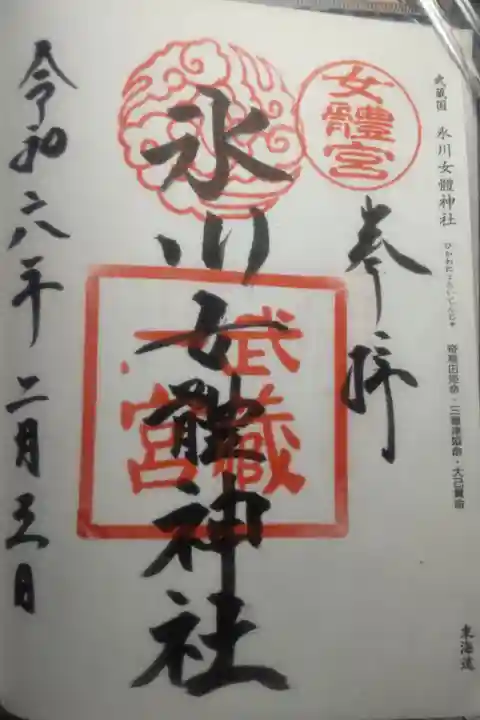 武蔵国 氷川女體神社 ひかわにょたいじんじゃ 奇稲田姫命・三穂津姫命・大己貴命
東海道
女體宮
奉拝
氷川女體神社
武蔵
一宮
令和六年二月三日